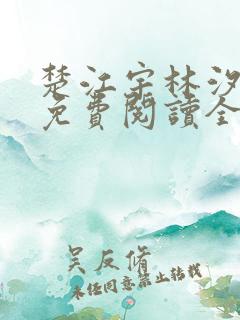 楚江宇林汐
免費閱讀全
吴反脩
未经同意禁止转载